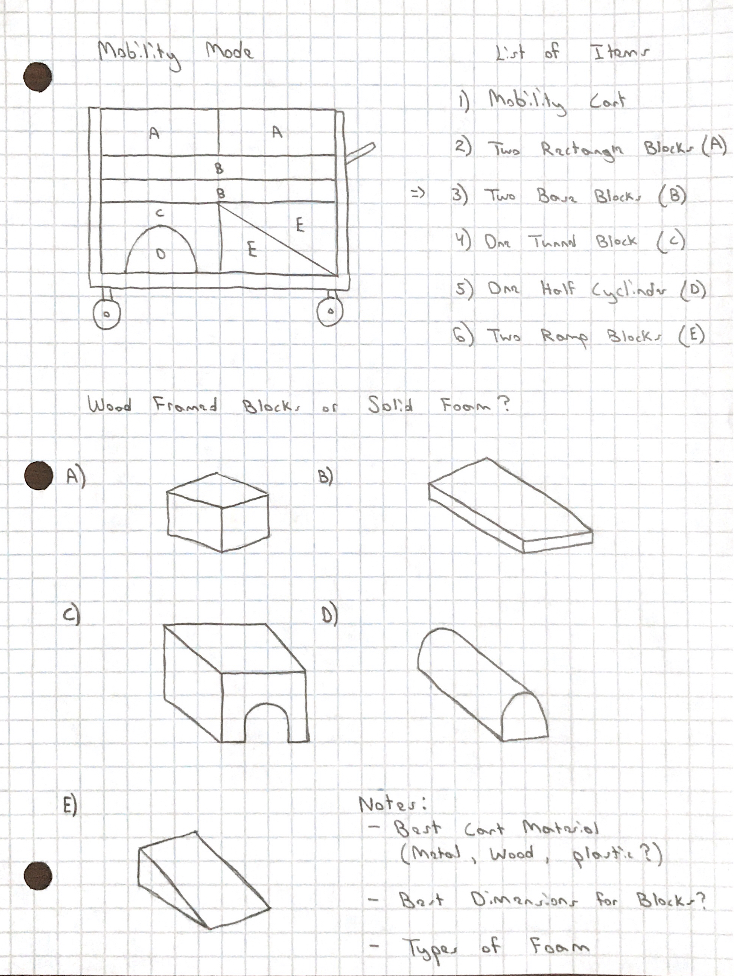 Mobility Mode
A A
B
B
C
E
D E
List of Items
1) Mobility Cart
2) Two Rectangle Blocks (A)
=> 3) Two Base Blocks (B)
4) One Tunnel Block (C)
5) One Half Cyclinder (D)
6) Two Ramp Blocks (E)
Wood Framed Blocks or Solid Foam?
A) B)
C) D)
E)
Notes:
- Best Cart Material
(Metal, Wood, plastic?)
- Best Dimensions for Blocks?
- Types of Foam